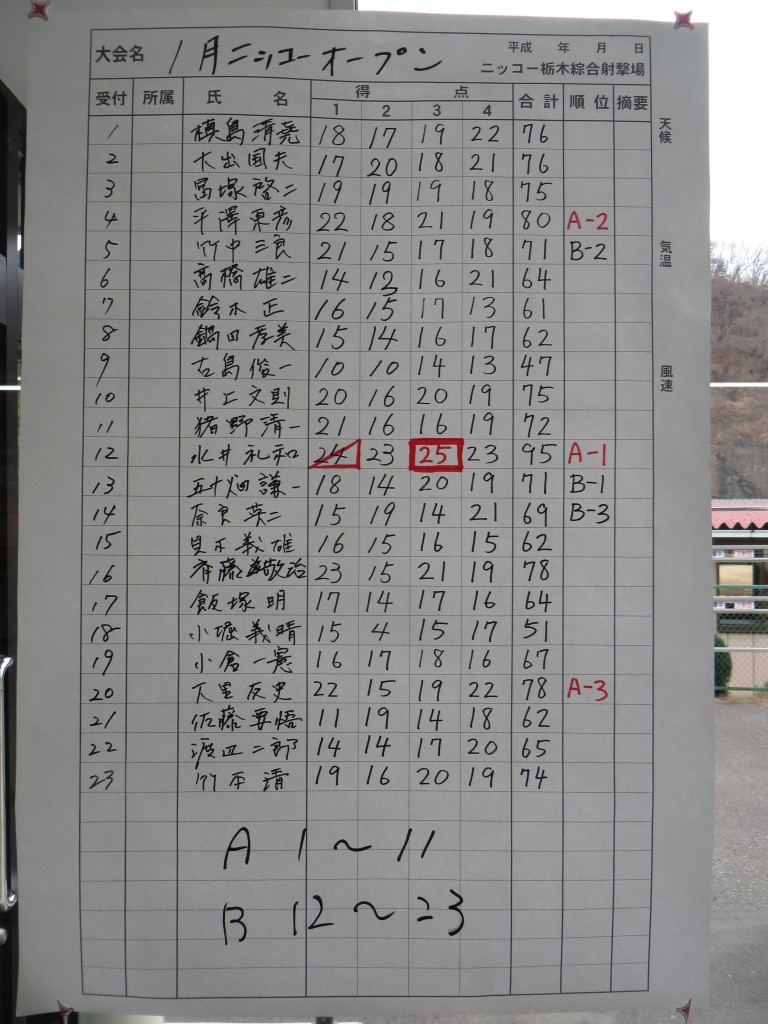 大会名 1月ニッコーオープン 平成 年 月 日
ニッコー栃木綜合射撃場
受付 所属 氏 名 得 点 合計 順位 摘要
1 2 3 4
天候
気温
風速
1 槙島清尭 18 17 19 22 76
2 大出国夫 17 20 18 21 76
3 冨塚啓二 19 19 19 18 75
4 平澤東彦 22 18 21 19 80 A-2
5 竹中三良 21 15 17 18 71 B-2
6 高橋雄二 14 12 16 21 64
7 鈴木正 16 15 17 13 61
8 鍋田孝美 15 14 16 17 62
9 古島俊一 10 10 14 13 47
10 井上文則 20 16 20 19 75
11 猪野清一 21 16 16 19 72
12 永井礼和 24 23 25 23 95 A-1
13 五十畑謙一 18 14 20 19 71 B-1
14 奈良英二 15 19 14 21 69 B-3
15 義雄 16 15 16 15 62
16 斉藤敬治 23 15 21 19 78
17 飯塚明 17 14 17 16 64
18 小堀義晴 15 4 15 17 51
19 小倉一憲 16 17 18 16 67
20 22 15 19 22 78 A-3
21 佐藤要悟 11 19 14 18 62
22 渡辺二郎 14 14 17 20 65
23 竹本清 19 16 20 19 74
A 1～11
B 12～23